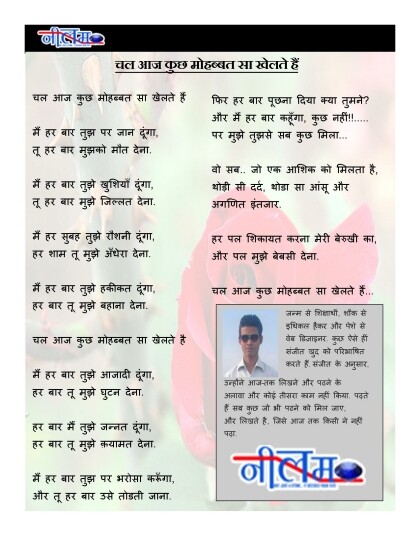 नीलम
चल आज कुछ मोहब्बत सा खेलते हैं
चल आज कुछ मोहब्बत सा खेलते हैं
मैं हर बार तुझ पर जान दूंगा,
तू हर बार मुझको मौत देना.
मैं हर बार तुझे खुशियाँ दूंगा,
तू हर बार मुझे जिल्लत देना.
मैं हर सुबह तुझे रौशनी दूंगा,
हर शाम तू मुझे अँधेरा देना.
मैं हर बार तुझे हकीकत दूंगा,
हर बार तू मुझे बहाना देना.
चल आज कुछ मोहब्बत सा खेलते है
मैं हर बार तुझे आजादी दूंगा,
हर बार तू मुझे घुटन देना.
हर बार मैं तुझे जन्नत दूंगा,
हर बार तू मुझे क़यामत देना.
मैं हर बार तुझ पर भरोसा करूँगा,
और तू हर बार उसे तोडती जाना.
फिर हर बार पूछना दिया क्या तुमने?
और मैं हर बार कहूँगा, कुछ नहीं!!.....
पर मुझे तुझसे सब कुछ मिला...
वो सब.. जो एक आशिक को मिलता है,
थोड़ी सी दर्द, थोडा सा आंसू और
अगणित इंतजार.
हर पल शिकायत करना मेरी बेरुखी का,
और पल मुझे बेबसी देना.
चल आज कुछ मोहब्बत सा खेलते हैं...
जन्म से शिक्षार्थी, शौक से
इथिकल हैकर और पेशे से
वेब डिजाइनर. कुछ ऐसे हीं
संजीत खुद को परिभाषित
करते हैं. संजीत के अनुसार,
उन्होंने आज-तक लिखने और पढने के
अलावा और कोई तीसरा काम नहीं किया. पढ़ते
हैं सब कुछ जो भी पढने को मिल जाए,
और लिखते है, जिसे आज तक किसी ने नहीं
पढ़ा.
नीलम